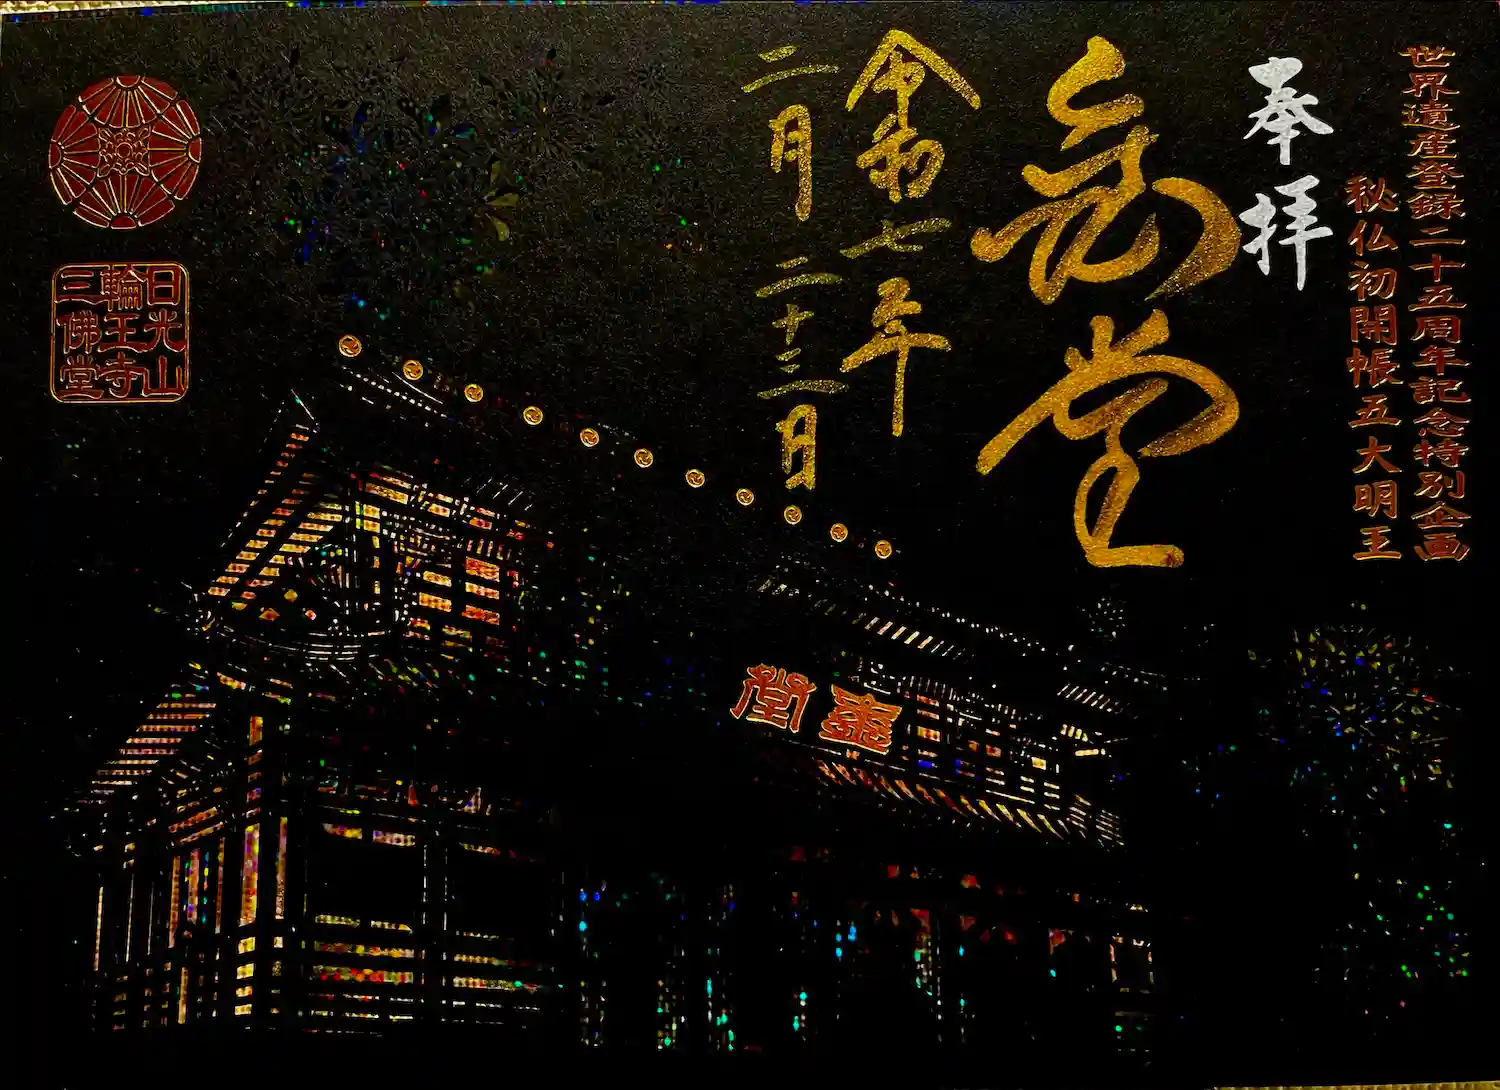 世界遺産登録二十五周年記念特別企画
秘仏初開帳五大明王
奉拝
堂
令和七年
二月二十三日
堂
日光山
輪王寺
三佛堂